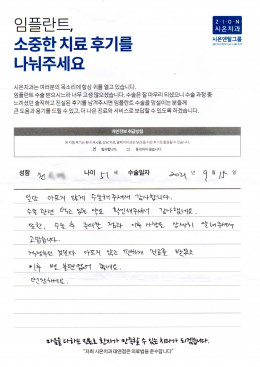 임플란트,
소중한 치료 후기를
나눠주세요
ZION
시온치과
시온덴탈그룹
시온치과는 여러분의 목소리에 항상 귀를 열고 있습니다.
임플란트 수술 받으시느라 너무 고생 많으셨습니다. 수술은 잘 마무리 되셨으니 수술 과정 중
느끼셨던 솔직하고 진실된 후기를 남겨주시면 임플란트 수술을 망설이는 분들께
큰 도움과 용기를 드릴 수 있고, 더 나은 진료와 서비스로 보답할 수 있도록 하겠습니다.
개인정보 취급방침
성함 나이 51 세 수술일자 2021 년 9 월 15 일
일단 아프지 않게 수술해주셔서 감사합니다.
수술 관련 확인해주셔서 감사해요.
또한, 수술 후 주의할 점과 이후 사항도 상세히 알려주셔서
고맙습니다.
걱정했던 것보다 아프지 않고 편하게 진료를 받았고
이후 별 불편없이 좋네요.
번창하세요.
마음을 다하는 진료로 환자가 안심할 수 있는 치과가 되겠습니다.
"저희 시온치과 대면점은 의료법을 준수합니다"